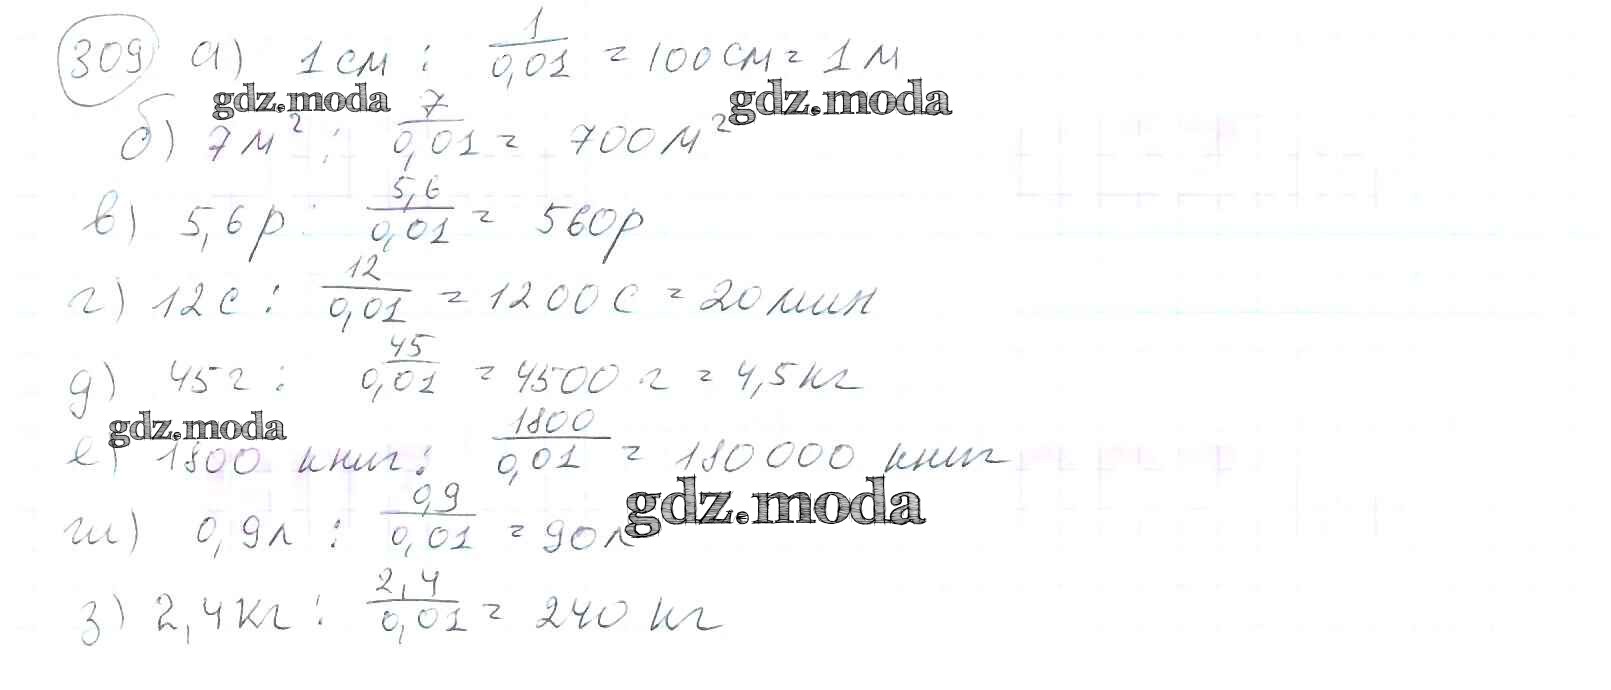 309 а) 1 см : 1/0,01 = 100 см = 1 м
gdz.moda gdz.moda
б) 7 м² : 7/0,01 = 700 м²
в) 5,6 р : 5,6/0,01 = 560 р
г) 12 с : 12/0,01 = 1200 с = 20 мин
д) 45 г : 45/0,01 = 4500 г = 4,5 кг
gdz.moda
е) 1800 книг : 1800/0,01 = 180000 книг
gdz.moda
ж) 0,9 л : 0,9/0,01 = 90 л
з) 2,4 кг : 2,4/0,01 = 240 кг